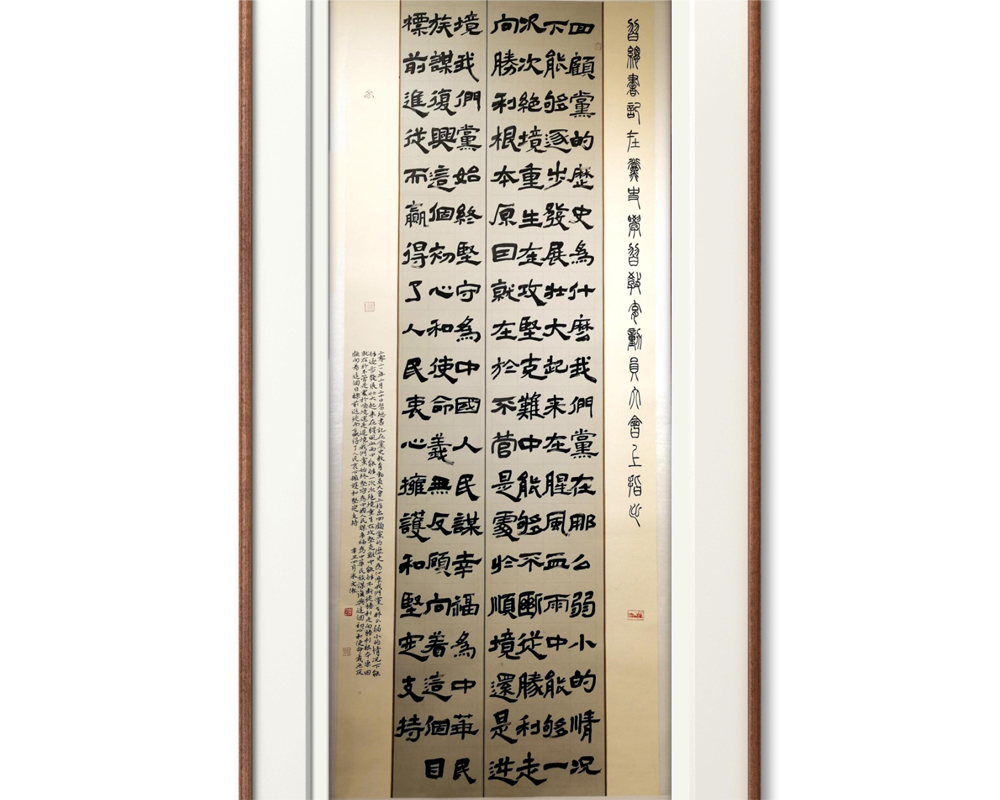 習總書記在黨史學習教育動員大會上指出
回顧黨的歷史為什麼我們黨在那么弱小的情况
下能够逐步發展壯大起来在腥風血雨中能够一
次次絕境重生在攻堅克難中能够不斷從勝利走
向勝利根本原因就在於不管是處於順境還是逆
境我們黨始終堅守為中國人民謀幸福為中華民
族謀復興這個初心和使命義無反顧向着這個目
標前進從而贏得了人民衷心擁護和堅定支持
顧向着這個目標前進從而贏得了人民衷心擁護和堅定支持 辛丑四月